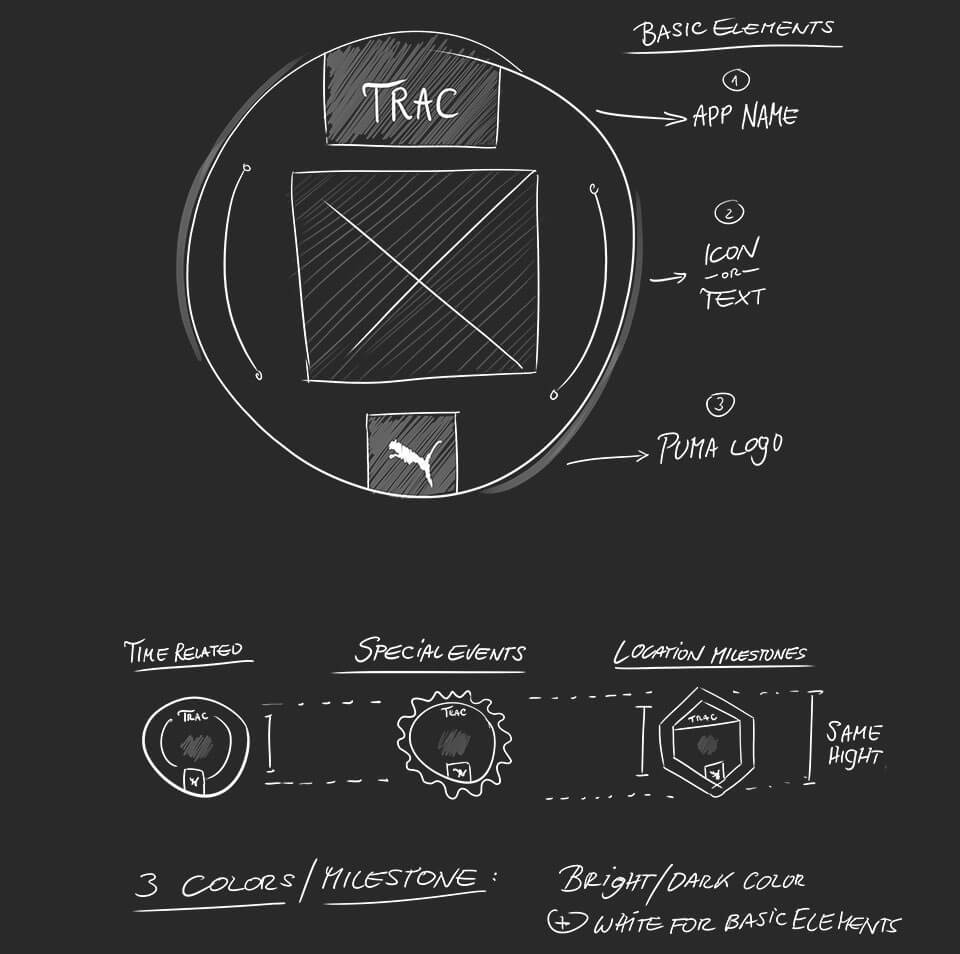 BASIC ELEMENTS
1
TRAC
APP NAME
2
ICON
OR
TEXT
3
PUMA LOGO
TIME RELATED
SPECIAL EVENTS
LOCATION MILESTONES
TRAC
TRAC
TRAC
SAME
HIGHT
3 COLORS/MILESTONE:
BRIGHT/DARK COLOR
+ WHITE FOR BASIC ELEMENTS